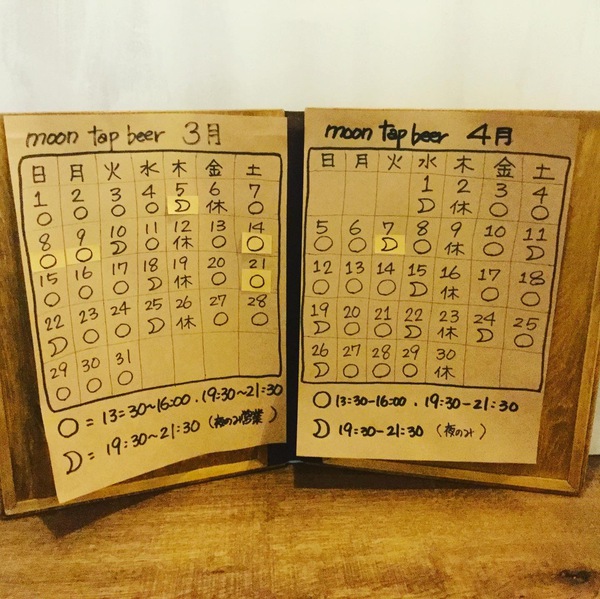 moon tap beer 3月
日 月 火 水 木 金 土
1 2 3 4 5 6 7
○ ○ ○ ○ ☽ 休 ○
8 9 10 11 12 13 14
○ ○ ☽ ○ 休 ○ ○
15 16 17 18 19 20 21
○ ○ ○ ☽ 休 ○ ○
22 23 24 25 26 27 28
☽ ○ ○ ☽ 休 ○ ○
29 30 31
○ ○ ○
○ = 13:30~16:00 . 19:30~21:30
☽ = 19:30~21:30 (夜のみ営業)
moon tap beer 4月
日 月 火 水 木 金 土
1 2 3 4
☽ 休 ○ ○
5 6 7 8 9 10 11
○ ○ ☽ ○ 休 ○ ☽
12 13 14 15 16 17 18
○ ○ ○ ☽ 休 ○ ○
19 20 21 22 23 24 25
☽ ○ ○ ☽ 休 ☽ ○
26 27 28 29 30
☽ ○ ○ ○ 休
○ 13:30-16:00 . 19:30-21:30
☽ 19:30-21:30 (夜のみ)